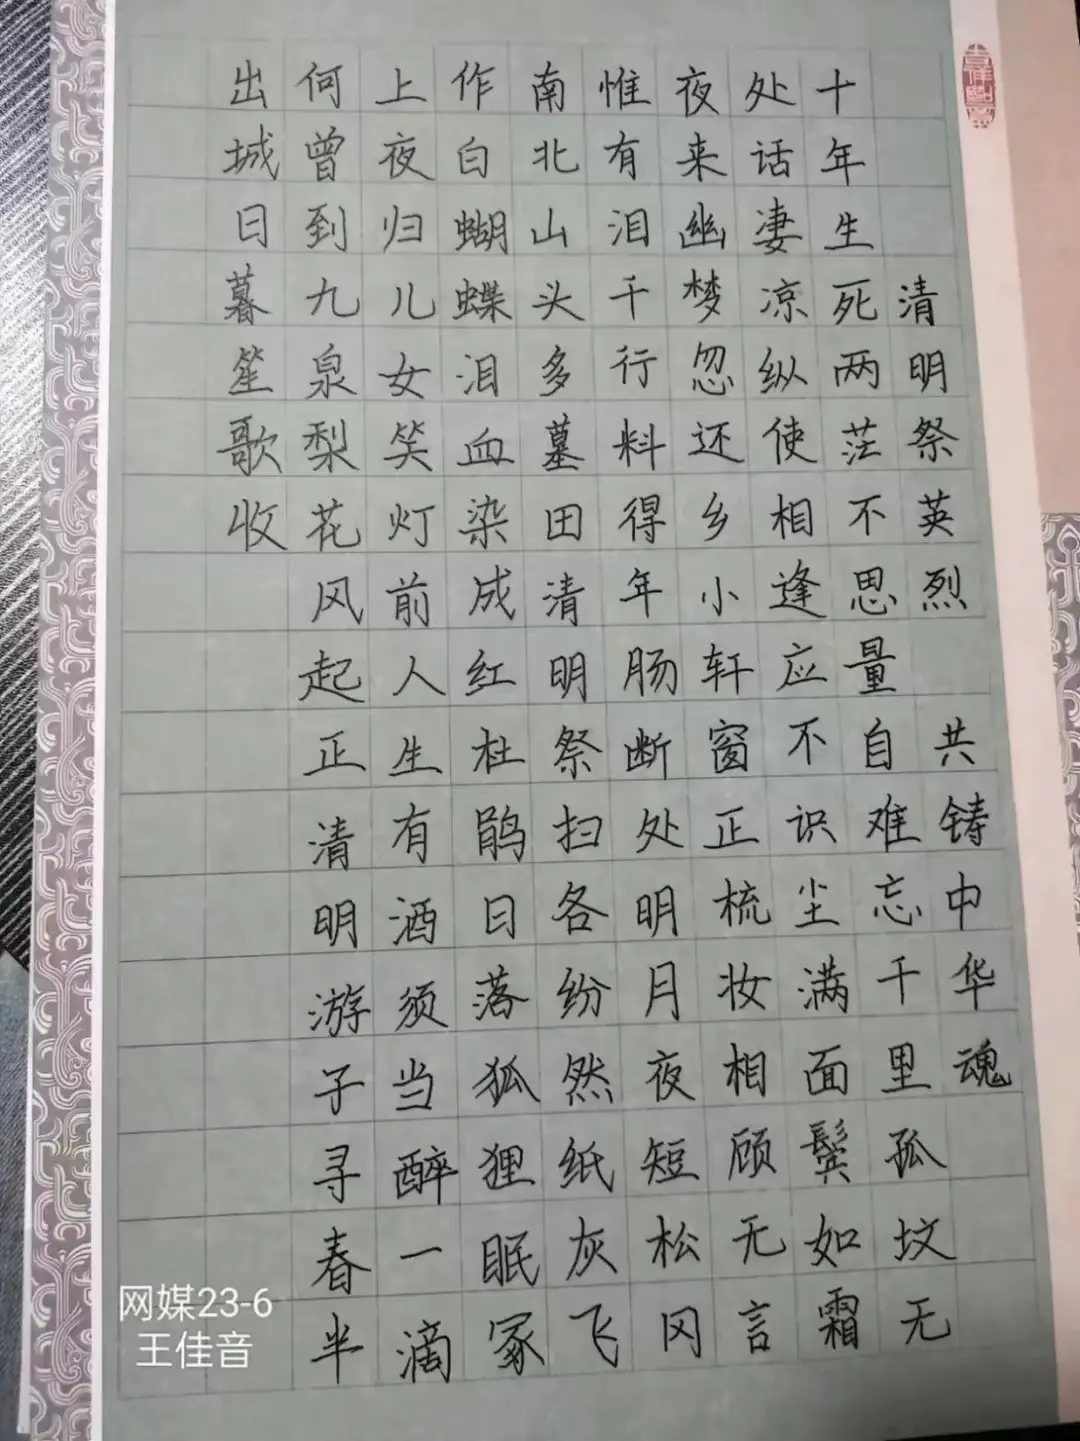 清明祭英烈 共铸中华魂
十年生死两茫不思量自难忘千里孤坟无
处话凄凉纵使相逢应不识尘满面鬓如霜
夜来幽梦忽还乡小轩窗正梳妆相顾无言
惟有泪千行料得年肠断处明月夜短松冈
南北山头多墓田清明祭扫各纷然纸灰飞
作白蝴蝶泪血染成红杜鹃日落狐狸眠冢
上夜归儿女笑灯前人生有酒须当醉一滴
何曾到九泉梨花风起正清明游子寻春半
出城日暮笙歌收
网媒23-6
王佳音